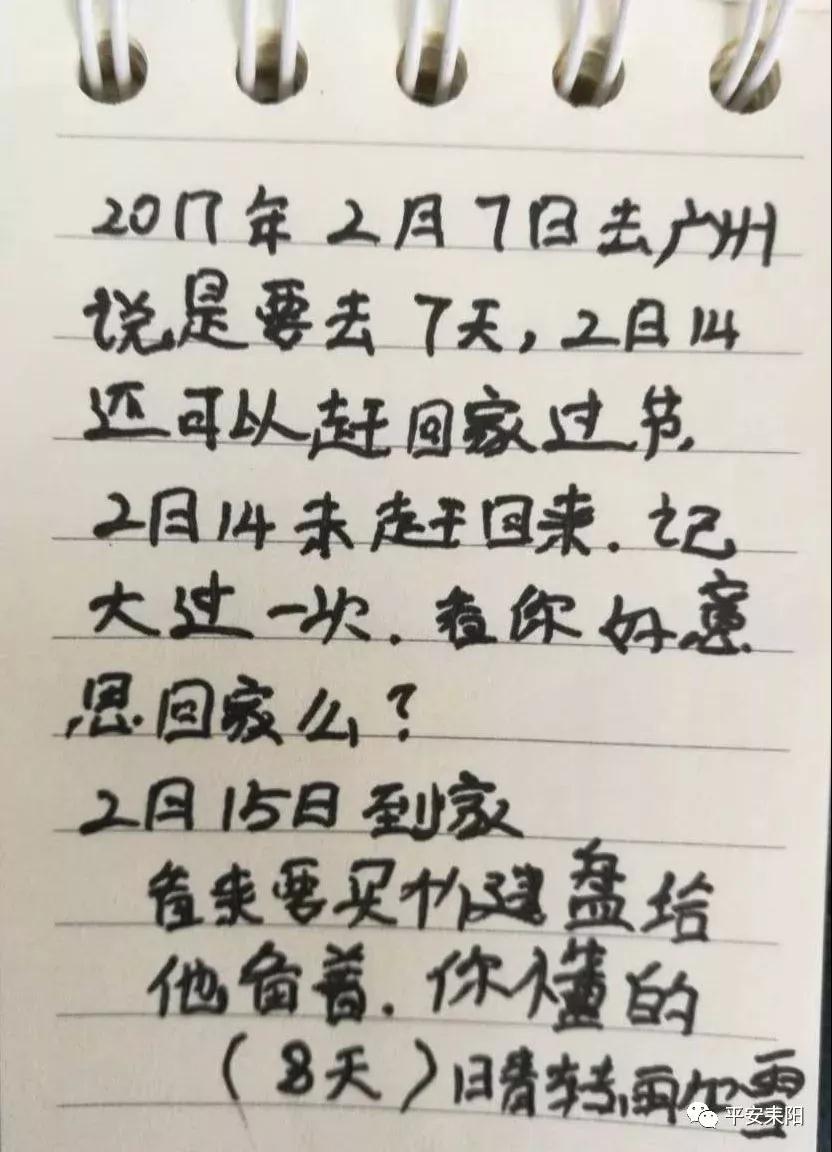 2017年2月7日去广州
说是要去7天,2月14
还可以赶回家过节,
2月14未赶回来.记
大过一次.看你好意
思回家么?
2月15日到家
看来要买个键盘给
他备着.你懂的
(8天)晴转雨加雪
平安耒阳